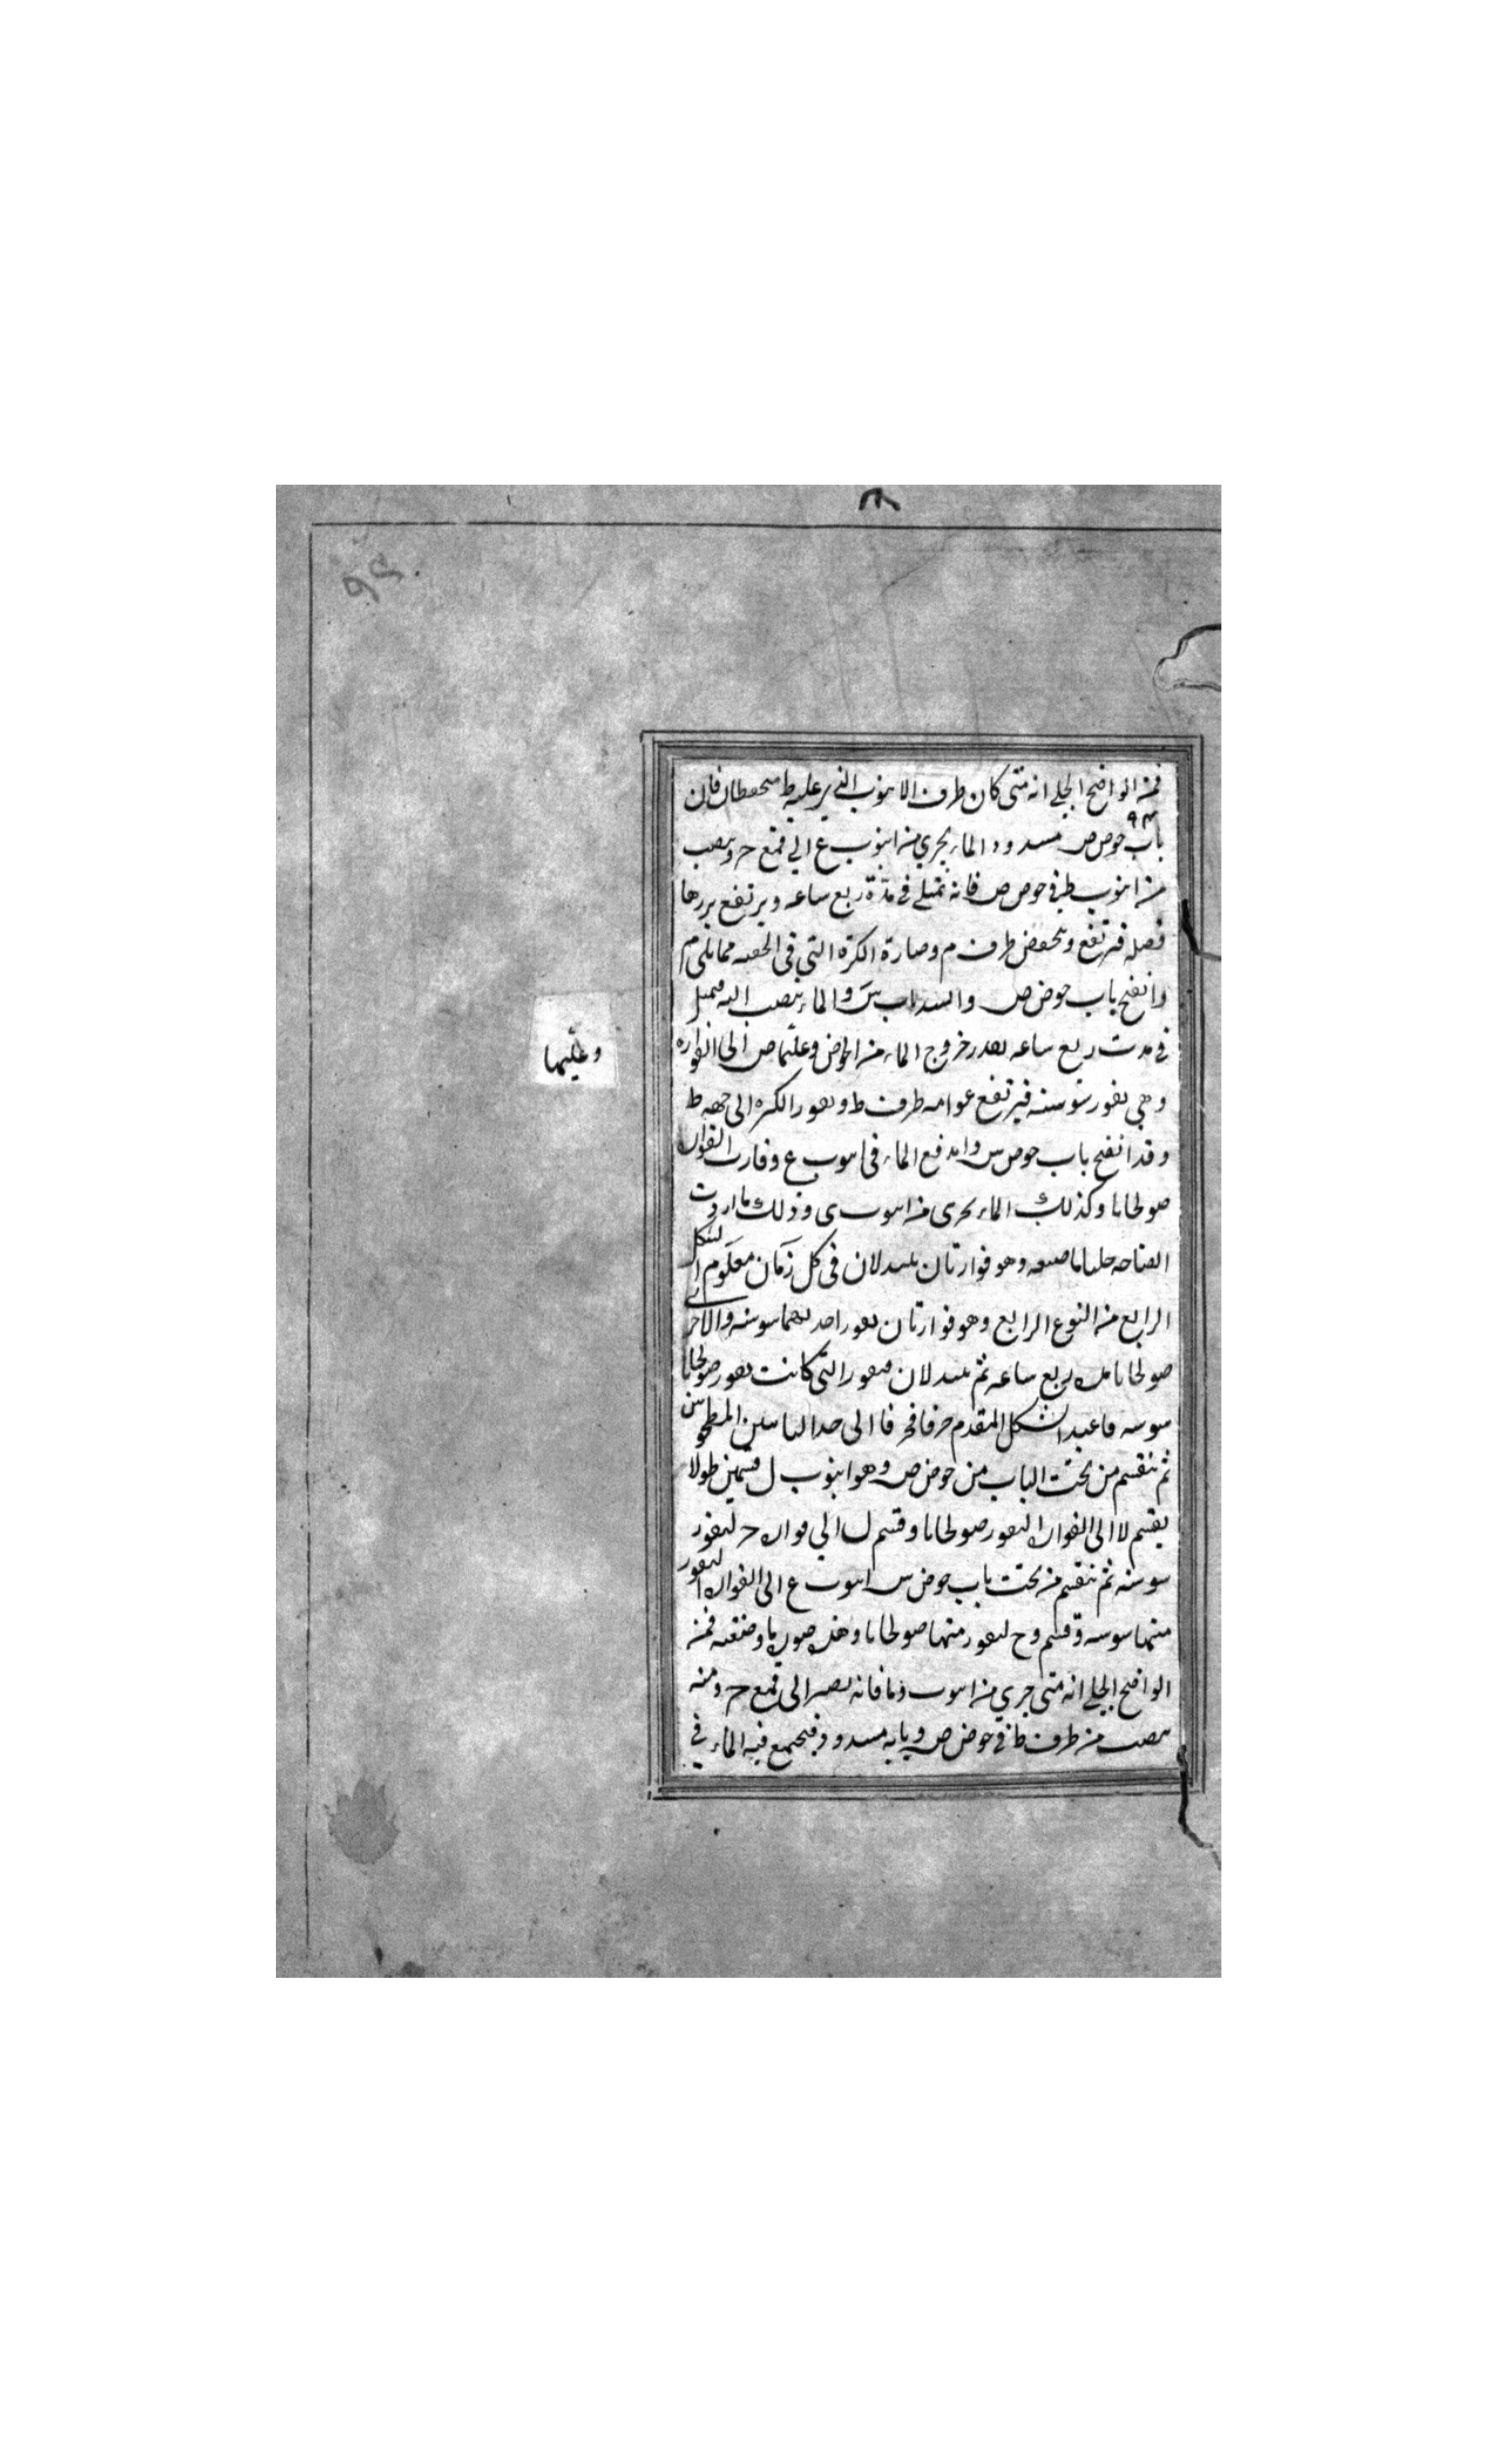 فمن الواضح الجلي انه متى كان طرف الانبوب الذي عليه ط منحفطا فان
باب حوض ص مسدود الماء يجري من انبوب ع الي قمع ح وينصب
من انبوب ط في حوض ص فانه تمتلي في مدة ربع ساعه ويرتفع
فيرتفع وينحفض طرف م وصارة الكرة التي في الحقه مما يلي م
وانفتح باب حوض ص والسد باب س والماء ينصب اليه
في مدت ربع ساعه بعد خروج الماء من الحوض وعليتها ص الى الفواره
وهي تفور سوسنه فيرتفع عوامه طرف ط الكره الى جهه ط
وقد انفتح باب حوض س واندفع الماء في انبوب ع وفارت الفواره
صولجانا وكذلك الماء يجري من انبوب ى وذلك ما اردت
ايضاحه وهو فوارتان يتبدلان في كل زمان معلوم الشكل
الرابع من النوع الرابع وهو فوارتان تفور احديهما سوسنه والاخرى
صولجانا مده ربع ساعه ثم يتبدلان فتفور التي كانت تفور صولجانا
سوسنه فاعيد الشكل المتقدم حرفا فحرفا الى حد البابين المطحونين
ثم ينقسم من تحت الباب من حوض ص وهو انبوب ل قسمين طولا
بقسم لا الى الفواره لتفور صولجانا وقسم ل الي فواره ح لتفور
سوسنه ثم ينقسم من تحت باب حوض س انبوب ع الى الفواره لتفور
منها سوسنه وقسم وح لتفور منها صولجانا وهذه صورته وصنعته فمن
الواضح الجلي انه متى جري من انبوب فانه يصير الى قمع ح ومنه
ينصب من طرف ط في حوض ص وبابه مسدود فيجتمع فيه الماء في
وعليتها